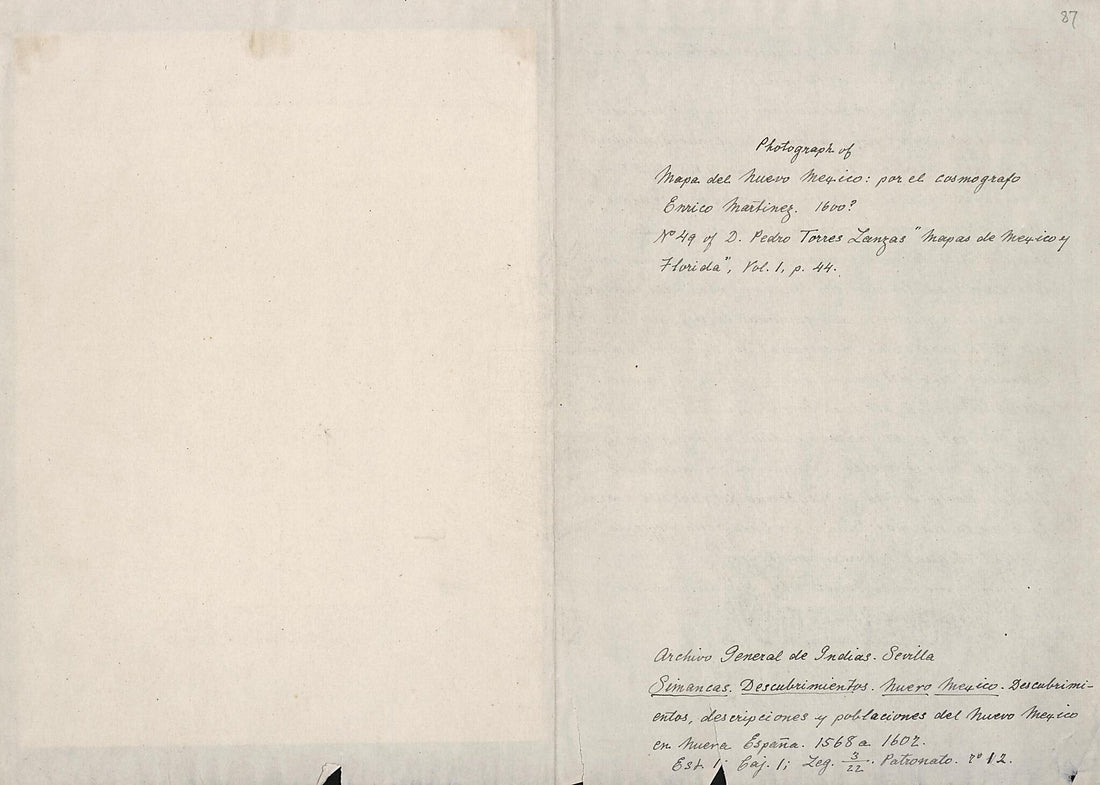 87
Photograph of
Mapa del Nuevo Mexico: por el cosmografo
Enrico Martinez. 1600?
Nº 49 of D. Pedro Torres Lanzas "Mapas de Mexico y
Florida", Vol. 1, p. 44.
Archivo General de Indias. Sevilla
Simancas. Descubrimientos. Nuevo Mexico. Descubrimi-
entos, descripciones y poblaciones del Nuevo Mexico
en Nueva España. 1568 a 1602.
Est. 1; Caj. 1; Leg. 3/22. Patronato. rº 12.